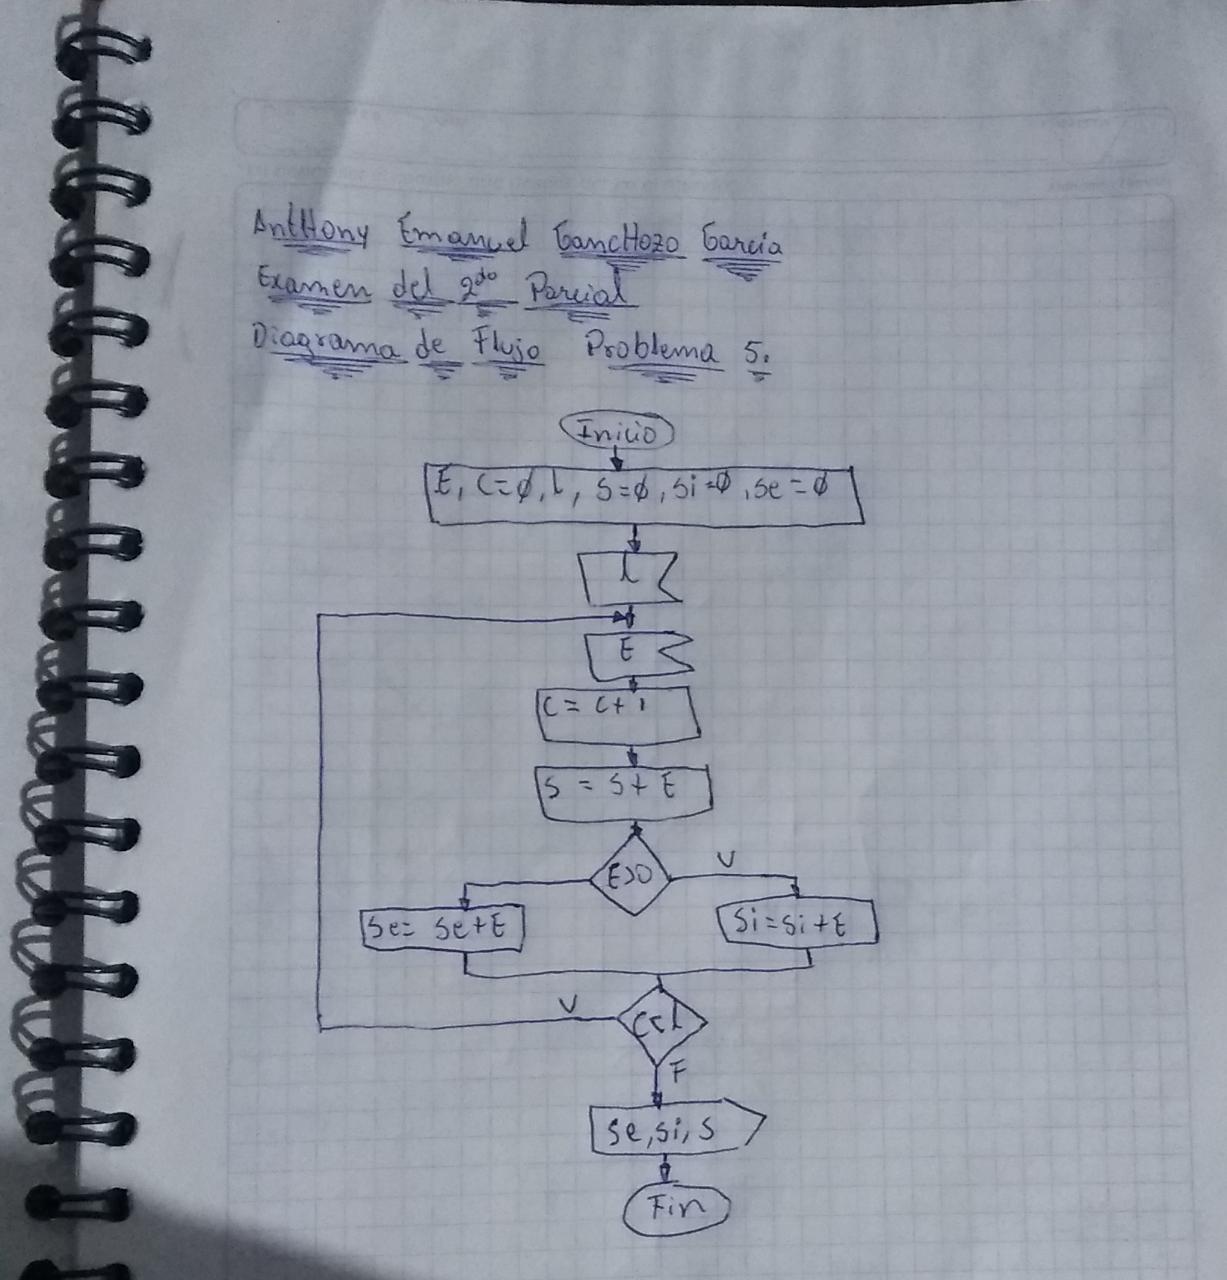 AntHony Emanuel GancHozo García
Examen del 2do Parcial
Diagrama de Flujo Problema 5.
Inicio
E, C=φ, l, S=φ, Si=φ, Se=φ
l
E
C= C+1
S = S+ E
E>0
V
Se= Se+E
Si=Si+E
V
C<l
F
Se, Si, S
Fin